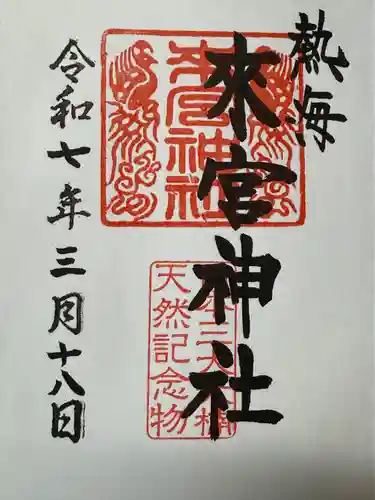 熱海
來宮神社
來宮神社
天然記念物
本三大樟
令和七年三月十八日